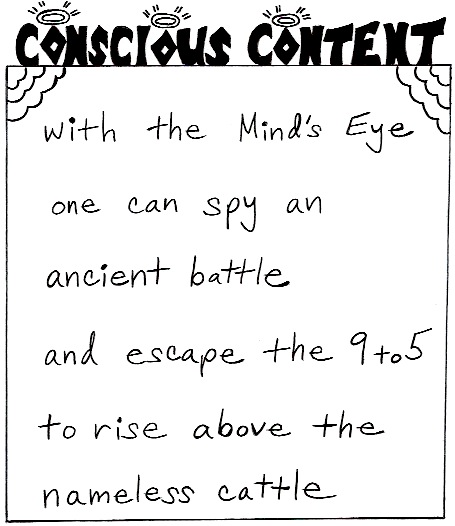 CONSCIOUS CONTENT
with the Mind's Eye
one can spy an
ancient battle
and escape the 9 to 5
to rise above the
nameless cattle